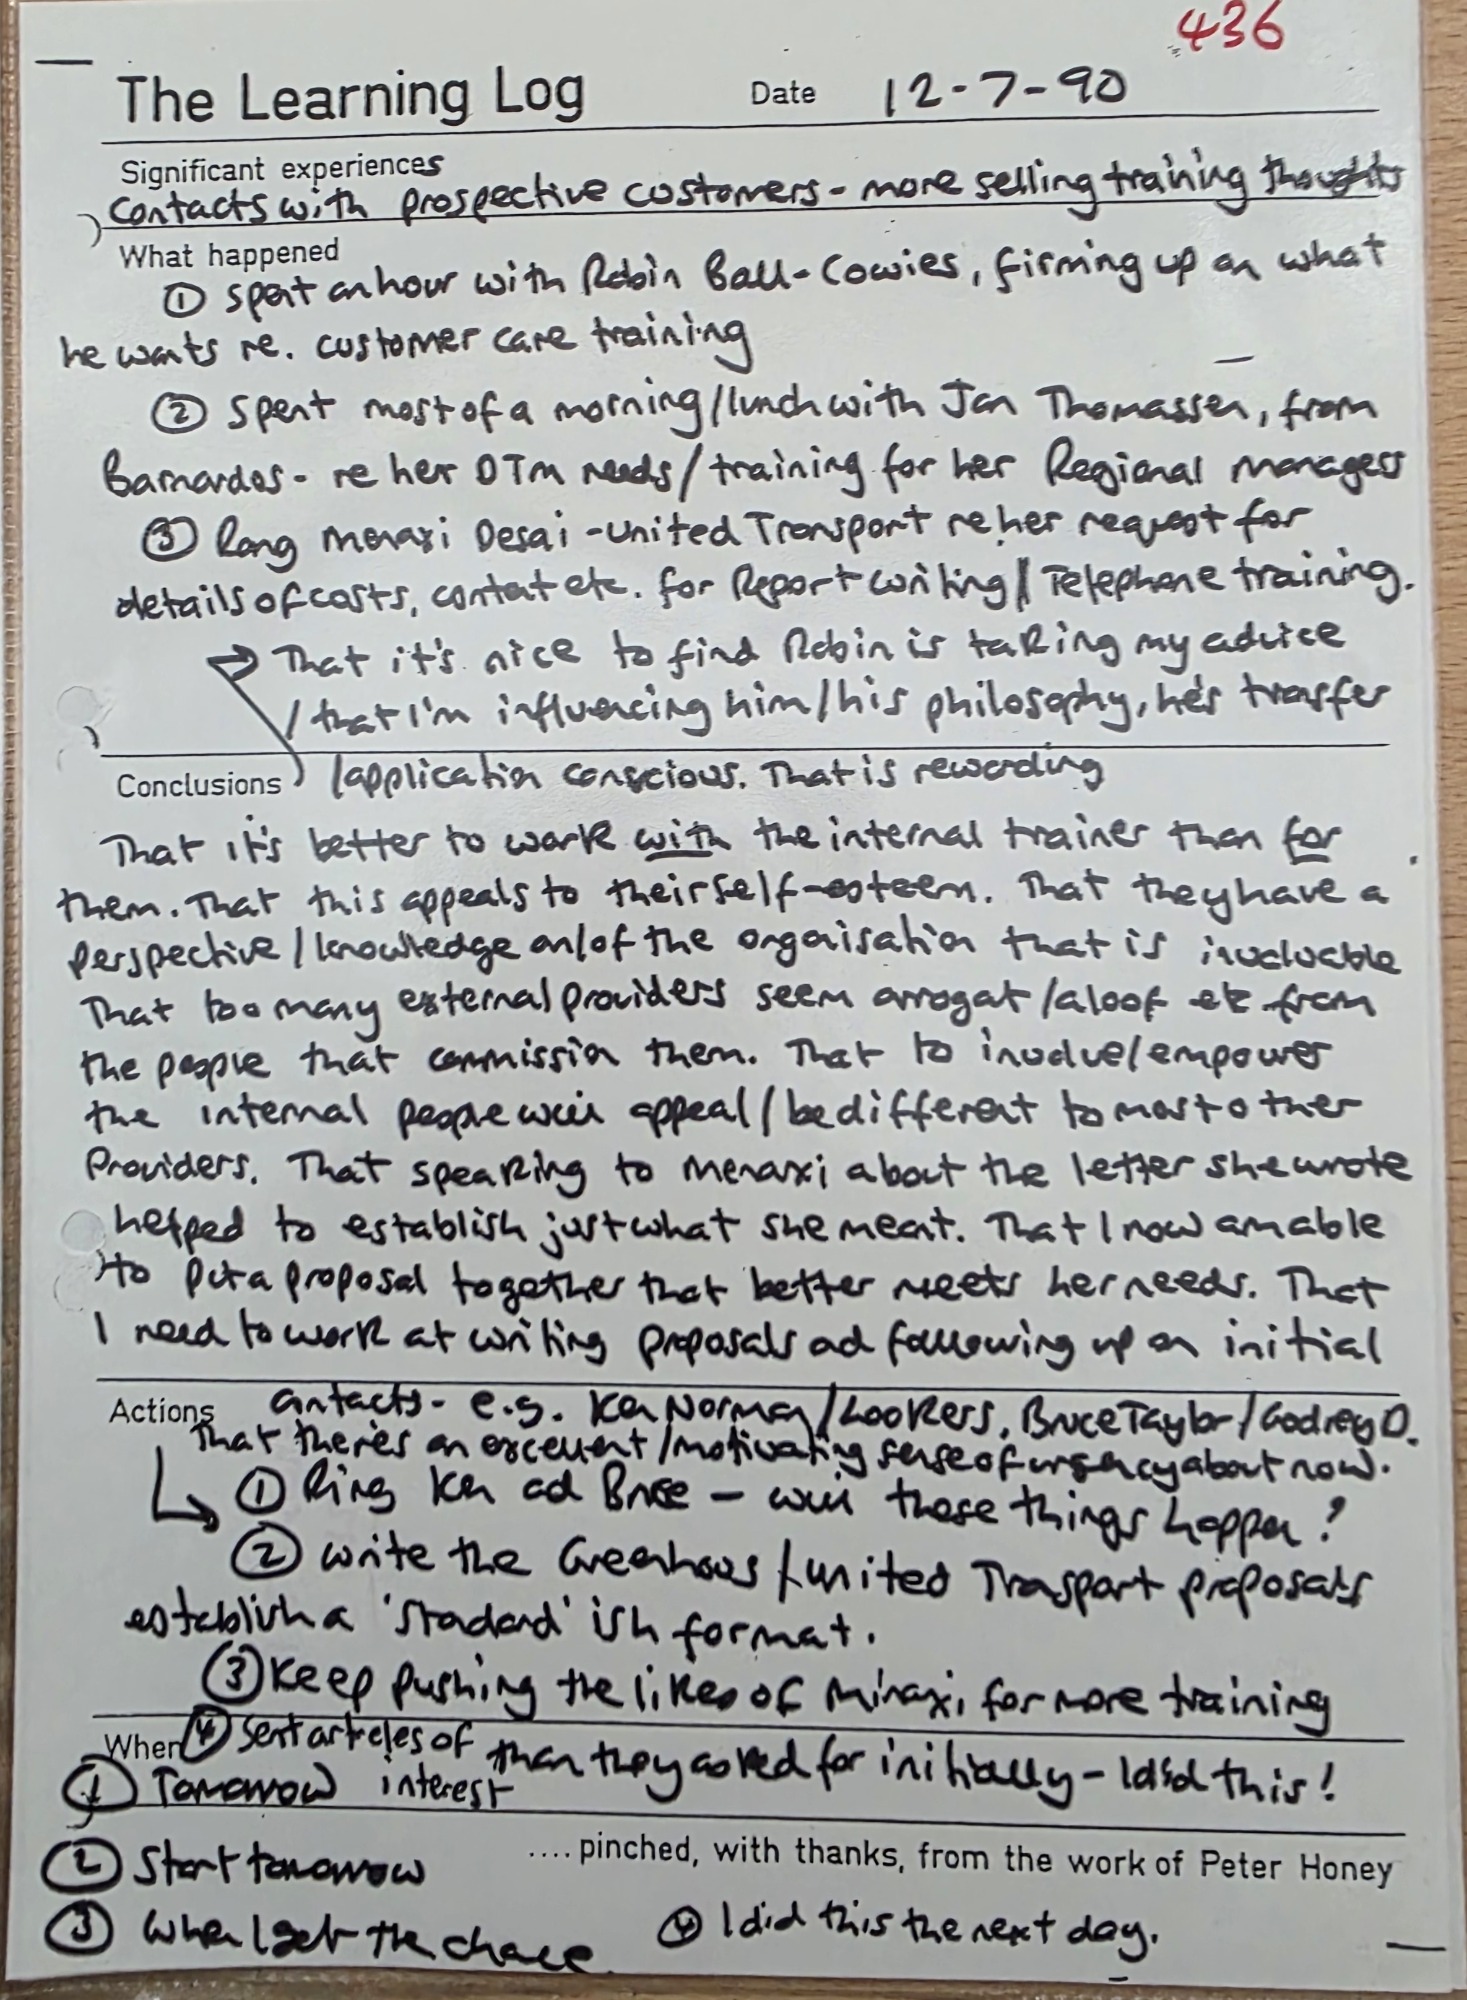 436
The Learning Log Date 12-7-90
Significant experiences
Contacts with prospective customers - more selling training thoughts
What happened
① spent an hour with Robin Ball-Cowies, firming up on what
he wants re. customer care training
② Spent most of a morning/lunch with Jan Thomassen, from
Barnardos - re her OTM needs/training for her Regional Managers
③ Rang Menaxi Desai - United Transport re her request for
details of costs, content etc. for Report writing / Telephone training.
→ That it's nice to find Robin is taking my advice
/ that I'm influencing him/his philosophy, he's transfer
Conclusions /application conscious. That is rewarding
That it's better to work with the internal trainer than for
them. That this appeals to their self-esteem. That they have a
perspective/knowledge on/of the organisation that is invaluable
That too many external providers seem arrogat/aloof etc from
the people that commission them. That to involve/empower
the internal people will appeal/be different to most other
Providers. That speaking to Menaxi about the letter she wrote
helped to establish just what she meant. That I now am able
to put a proposal together that better meets her needs. That
I need to work at writing proposals ad following up on initial
Actions contacts - e.g. Ken Norman/Lookers, Bruce Taylor/Godrey D.
That there's an excellent/motivating sense of urgency about now.
① Ring Ken ad Bruce - will these things happen?
② Write the Greenhous / United Trasport proposals
establish a 'stadard' ish format.
③ Keep pushing the likes of Minaxi, for more training
When ④ Sent articles of than they asked for initially - I did this!
① Tomorrow interest
② Start tomorrow ....pinched, with thanks, from the work of Peter Honey
③ When I get the chace ④ I did this the next day.